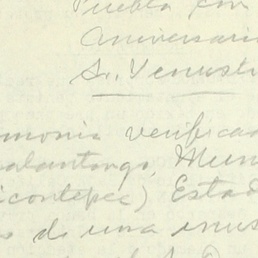 Puebla con
Aniversari
Sr. Venusti
monia verificad
alantongo, Mun
icontepec) Estad
s de una inus